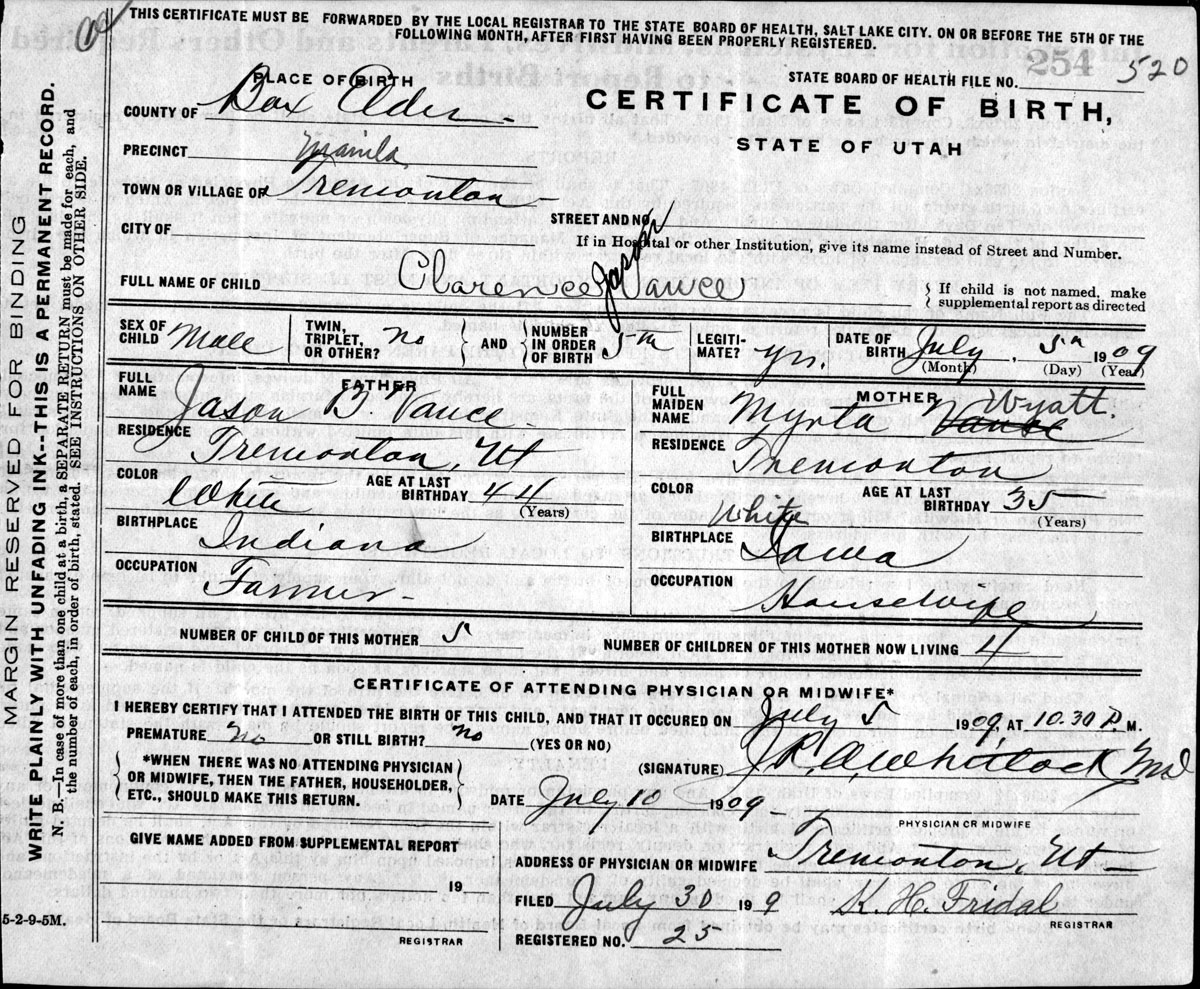 THIS CERTIFICATE MUST BE FORWARDED BY THE LOCAL REGISTRAR TO THE STATE BOARD OF HEALTH, SALT LAKE CITY. ON OR BEFORE THE 5TH OF THE
FOLLOWING MONTH, AFTER FIRST HAVING BEEN PROPERLY REGISTERED.
STATE BOARD OF HEALTH FILE NO. 254 520
PLACE OF BIRTH
COUNTY OF Box Elder
CERTIFICATE OF BIRTH,
STATE OF UTAH
PRECINCT Manila
TOWN OR VILLAGE OF Tremonton
STREET AND NO.
CITY OF
If in Hospital or other Institution, give its name instead of Street and Number.
FULL NAME OF CHILD Clarence Jasper Vance
If child is not named, make
supplemental report as directed
SEX OF CHILD Male TWIN, TRIPLET, OR OTHER? No AND NUMBER IN ORDER OF BIRTH 5th LEGITI- MATE? yes. DATE OF BIRTH July 5th 1909
(Month) (Day) (Year)
FATHER
FULL NAME Jason B Vance
RESIDENCE Tremonton, Ut
COLOR White AGE AT LAST BIRTHDAY 44 (Years)
BIRTHPLACE Indiana
OCCUPATION Farmer
MOTHER
FULL MAIDEN NAME Myrta Vance Wyatt.
RESIDENCE Tremonton
COLOR White AGE AT LAST BIRTHDAY 35 (Years)
BIRTHPLACE Iowa
OCCUPATION Housewife
NUMBER OF CHILD OF THIS MOTHER 5 NUMBER OF CHILDREN OF THIS MOTHER NOW LIVING 4
CERTIFICATE OF ATTENDING PHYSICIAN OR MIDWIFE*
I HEREBY CERTIFY THAT I ATTENDED THE BIRTH OF THIS CHILD, AND THAT IT OCCURED ON July 5 1909, AT 10.30 P. M.
PREMATURE No OR STILL BIRTH? No (YES OR NO)
*WHEN THERE WAS NO ATTENDING PHYSICIAN
OR MIDWIFE, THEN THE FATHER, HOUSEHOLDER,
ETC., SHOULD MAKE THIS RETURN.
(SIGNATURE) Whitlock Md
DATE July 10 1909
PHYSICIAN OR MIDWIFE
GIVE NAME ADDED FROM SUPPLEMENTAL REPORT
19
REGISTRAR
ADDRESS OF PHYSICIAN OR MIDWIFE Tremonton, Ut
FILED July 30 19 9 K. H. Fridal
REGISTRAR
REGISTERED NO. 25
5-2-9-5M.
MARGIN RESERVED FOR BINDING
WRITE PLAINLY WITH UNFADING INK--THIS IS A PERMANENT RECORD.
N. B.—In case of more than one child at a birth, a SEPARATE RETURN must be made for each, and
the number of each, in order of birth, stated. SEE INSTRUCTIONS ON OTHER SIDE.